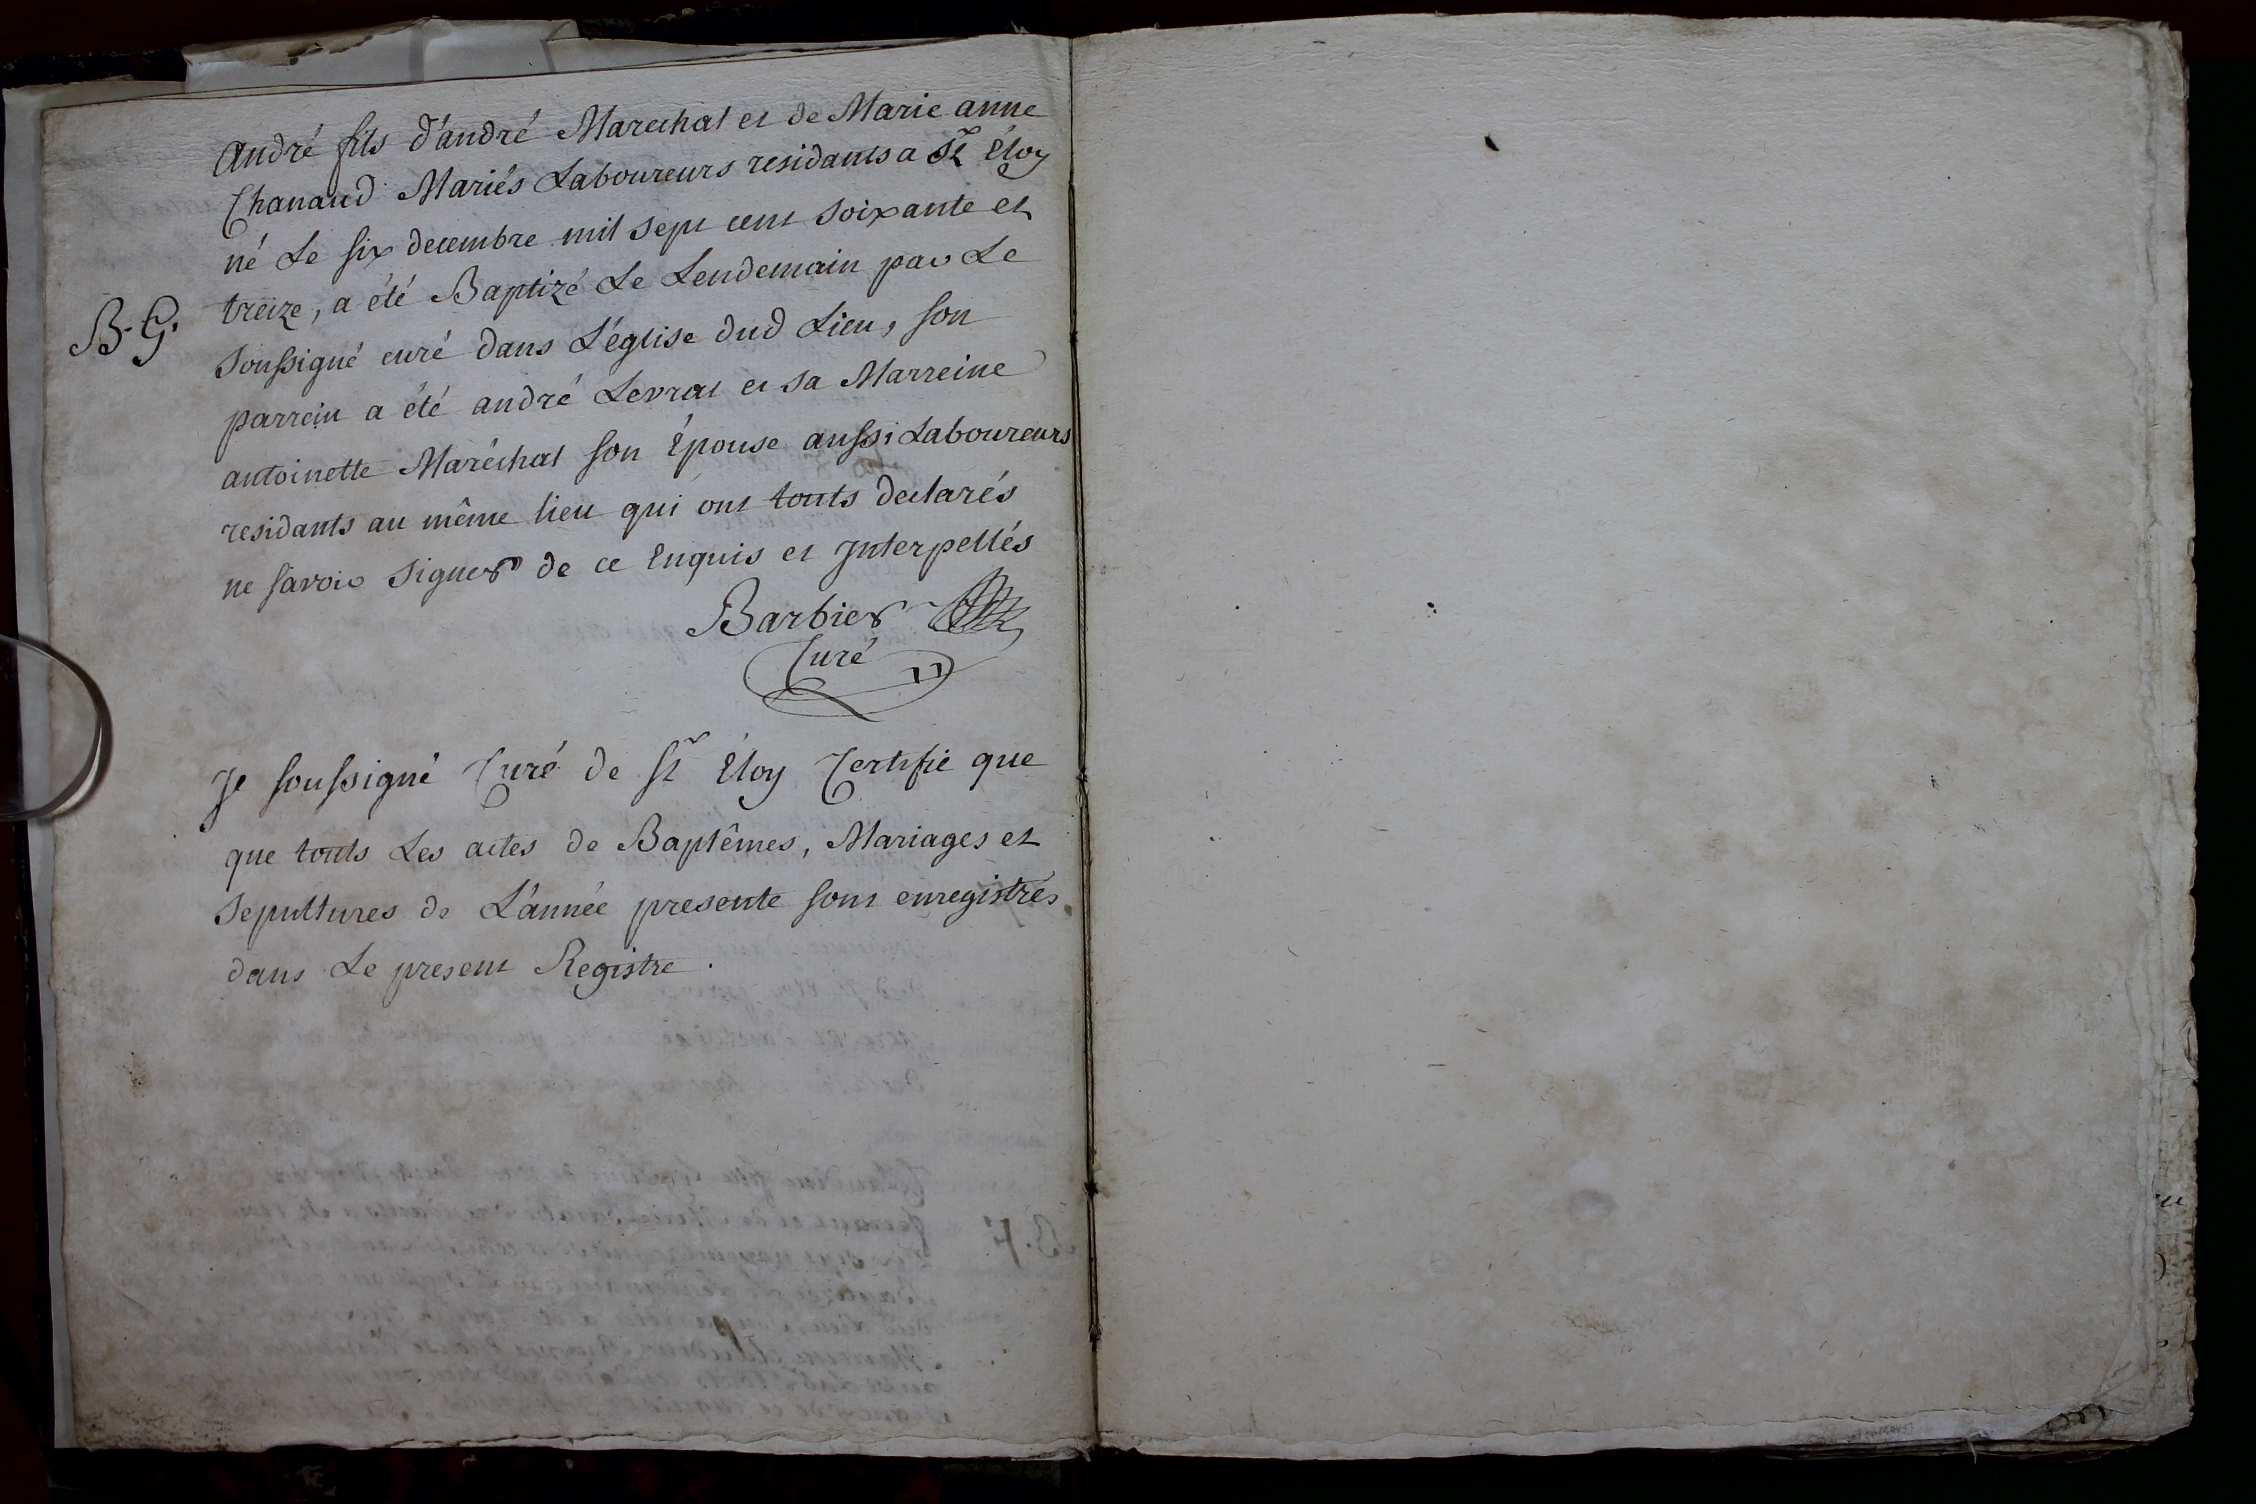 André fils d'andré Marechal et de Marie anne
Chanaud Mariés Laboureurs residants a St Éloy
né Le six decembre mil sept cent soixante et
treize, a été Baptizé Le Lendemain par Le
B. G.
soussigné curé dans L'église dud Lieu, son
parrein a été andré Levrat et sa Marreine
antoinette Maréchal son Épouse aussi Laboureurs
residants au même lieu qui ont touts declarés
ne savoir signer de ce Enquis et Interpellés
Barbier
Curé
Je soussigné Curé de St Éloy Certifie que
que touts Les actes de Baptêmes, Mariages et
Sepultures de L'année presente sont enregistrés
dans Le present Registre.